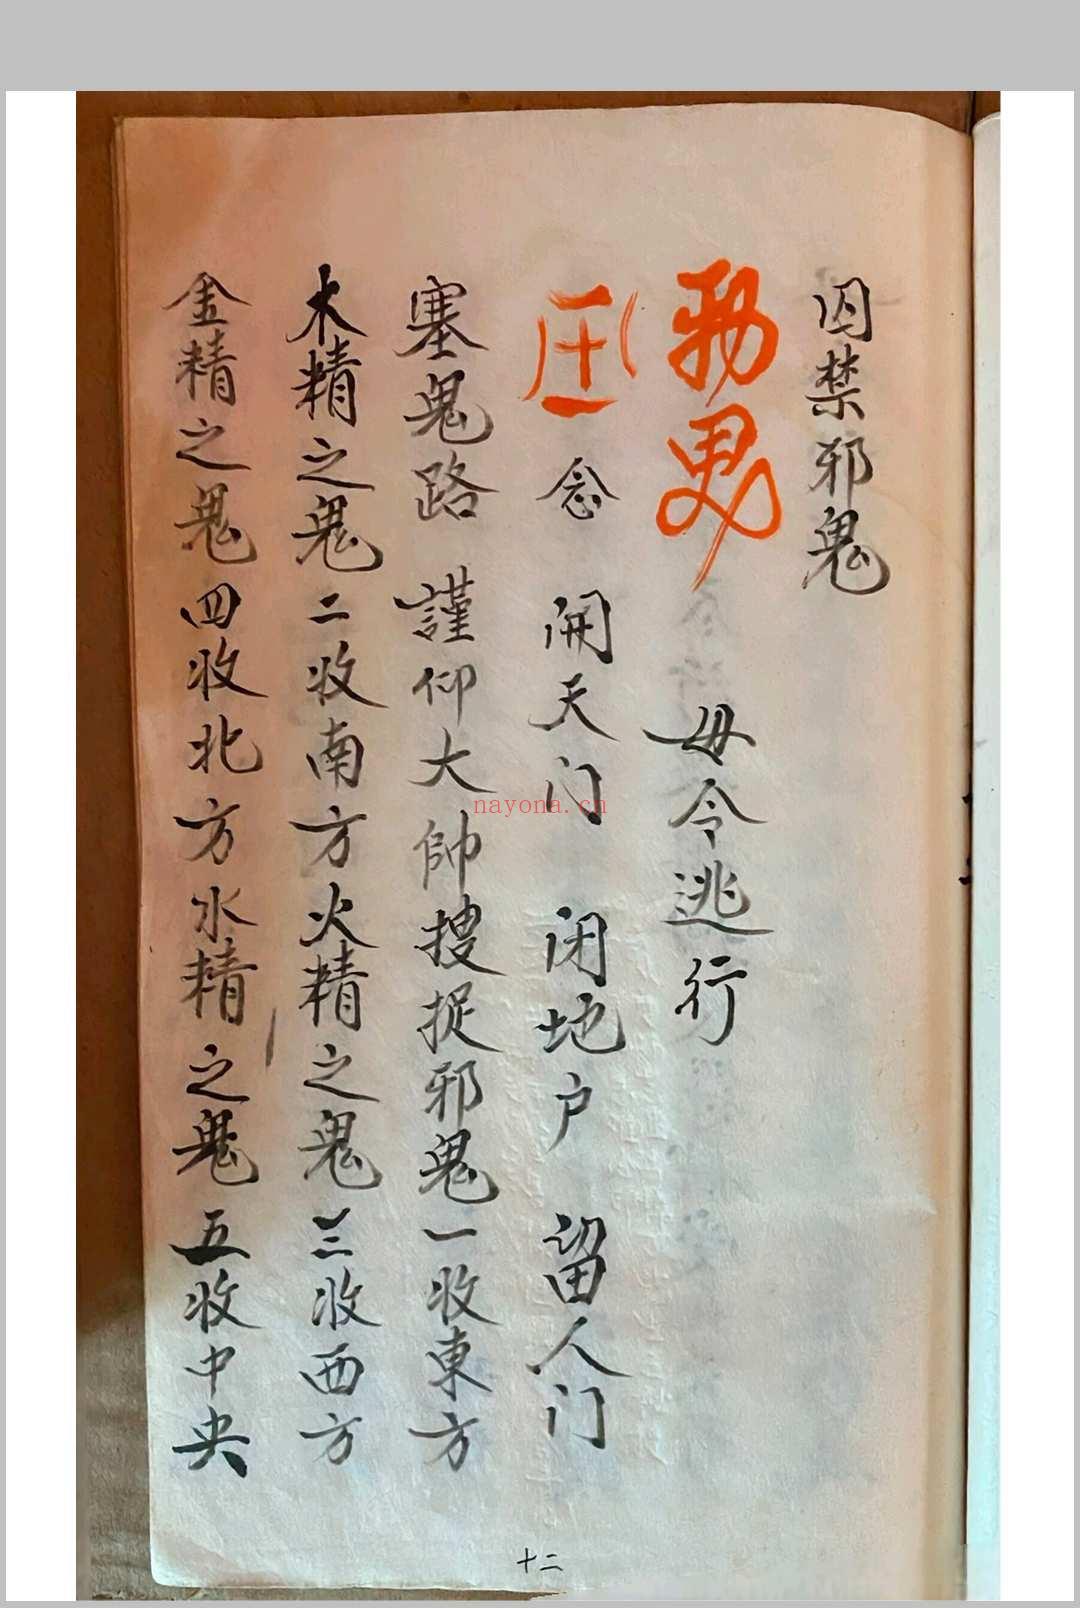 囚禁邪鬼
毋令逃行
念 开天门 闭地户 留人门
塞鬼路 謹仰大帥搜捉邪鬼一收東方
木精之鬼二收南方火精之鬼三收西方
金精之鬼四收北方水精之鬼五收中央
十二
nayona.cn